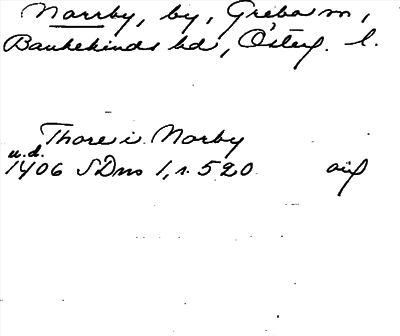 Norrby, by, Grebo sn,
Bankekinds hd, Österg. l.
Thore i Norby
u.d.
1406 SDns 1, s. 520 avs